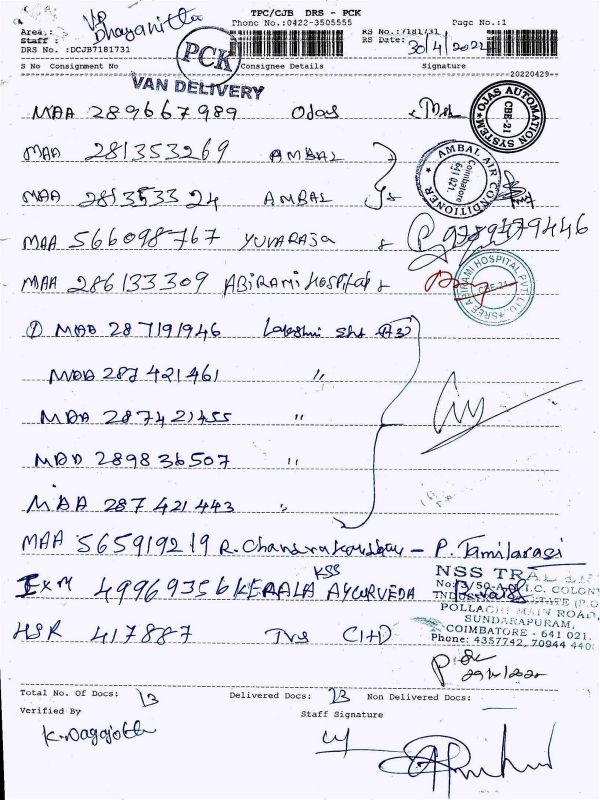 TPC/CJB DRS - PCK
Phone No.:0422-3505555 Page No.:1
Area.:
Staff :
DRS No. :DCJB7181731
RS No.:7181731
RS Date: 30/4/2022
PCK
VAN DELIVERY
S No Consignment No Consignee Details Signature
20220429--
MAA 289667989 Ojas
OJAS AUTOMATION SYSTEM CBE-21
MAA 281353269 AMBAL
AMBAL AIR CONDITIONER Coimbatore 641 021.
MAA 281353324 AMBAL
MAA 566098767 YUVARAJA 9789179446
MAA 286133309 ABIRAMI Hospital
SREE ABIRAMI HOSPITAL PVT LTD. CBE-21
① MAA 287191946 Lakshmi
MAA 287421461 "
MAA 287421455 "
MAA 289836507 "
MAA 287421443 "
MAA 565919219 R. - P. Tamilarasi
EXM 49969356 KERALA AYURVEDA
KSS
NSS
COLONY
POLLACHI MAIN ROAD,
SUNDARAPURAM,
COIMBATORE - 641 021.
Phone: 4357742, 70944 440
HSR 417887 TVS
Total No. Of Docs: 13 Delivered Docs: 13 Non Delivered Docs:
Verified By Staff Signature